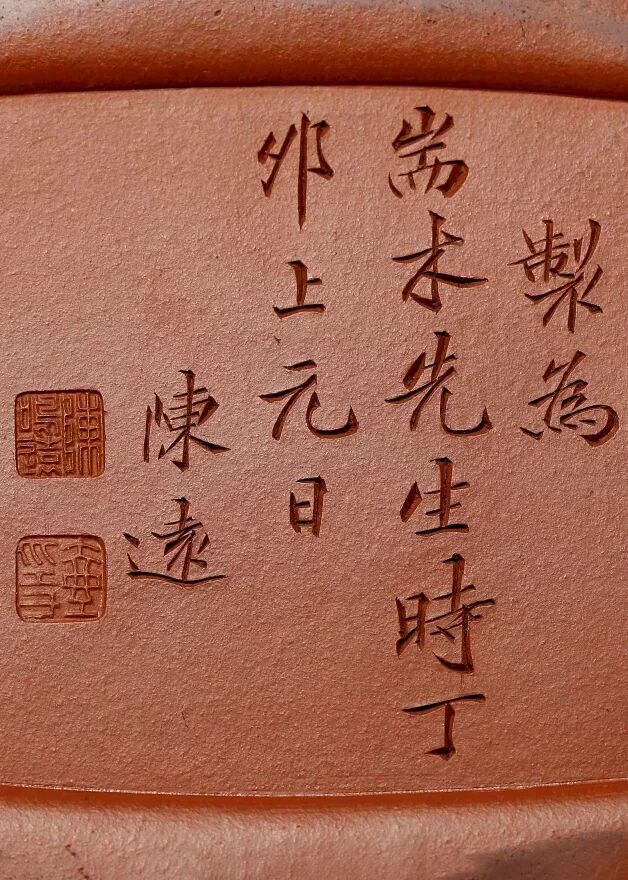 製為
耑木先生時丁
卯上元日
陳遠
陳鳴遠